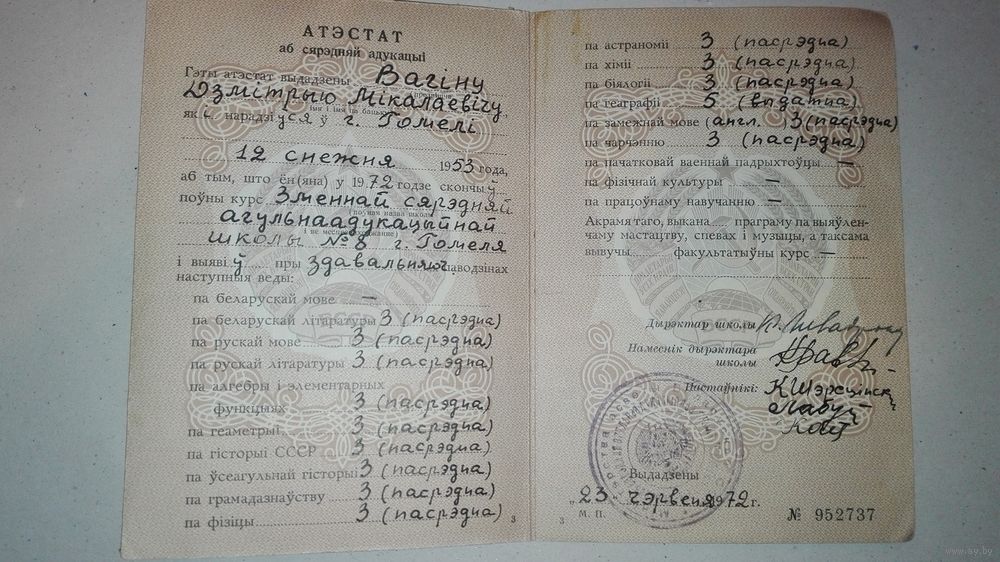 АТЭСТАТ
аб сярэдняй адукацыі
Гэты атэстат выдадзены Вагіну
Дзмітрыю Мікалаевічу,
які нарадзіўся ў г. Гомелі
12 снежня 1953 года,
аб тым, што ён(яна) у 1972 годзе скончыў
поўны курс Зменнай сярэдняй
агульнаадукацыйнай
школы №8 г. Гомеля
і выявіў пры здавальняюч. паводзінах
наступныя веды:
па беларускай мове —
па беларускай літаратуры 3 (пасрэдна)
па рускай мове 3 (пасрэдна)
па рускай літаратуры 3 (пасрэдна)
па алгебры і элементарных
функцыях 3 (пасрэдна)
па геаметрыі 3 (пасрэдна)
па гісторыі СССР 3 (пасрэдна)
па ўсеагульнай гісторыі 3 (пасрэдна)
па грамадазнаўству 3 (пасрэдна)
па фізіцы 3 (пасрэдна)
3
па астраноміі 3 (пасрэдна)
па хіміі 3 (пасрэдна)
па біялогіі 3 (пасрэдна)
па геаграфіі 5 (выдатна)
па замежнай мове (англ. 3 (пасрэдна)
па чарчэнню 3 (пасрэдна)
па пачатковай ваеннай падрыхтоўцы —
па фізічнай культуры —
па працоўнаму навучанню —
Акрамя таго, выкана праграму па выяўлен-
чаму мастацтву, спевах і музыцы, а таксама
вывучы факультатыўны курс —
Дырэктар школы
Намеснік дырэктара
школы
Настаўнікі:
Выдадзены
„23 чэрвеня 1972 г.
М. П.
№ 952737
3
www.ay.by